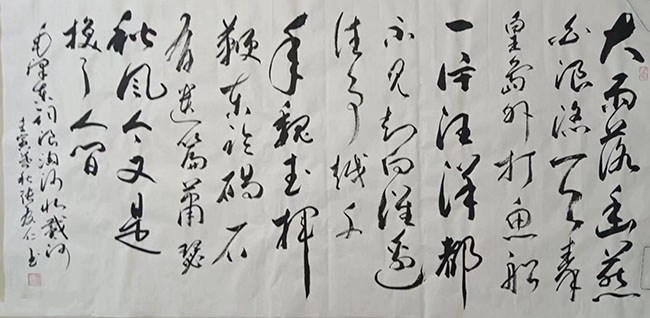 大雨落幽燕
白浪滔天秦
皇岛外打鱼船
一片汪洋都
不见知向谁边
往事越千
年魏武揮
鞭东临碣石
有遗篇萧瑟
秋风今又是
换了人间
毛泽东词浪淘沙北戴河
壬寅秋张友仁书